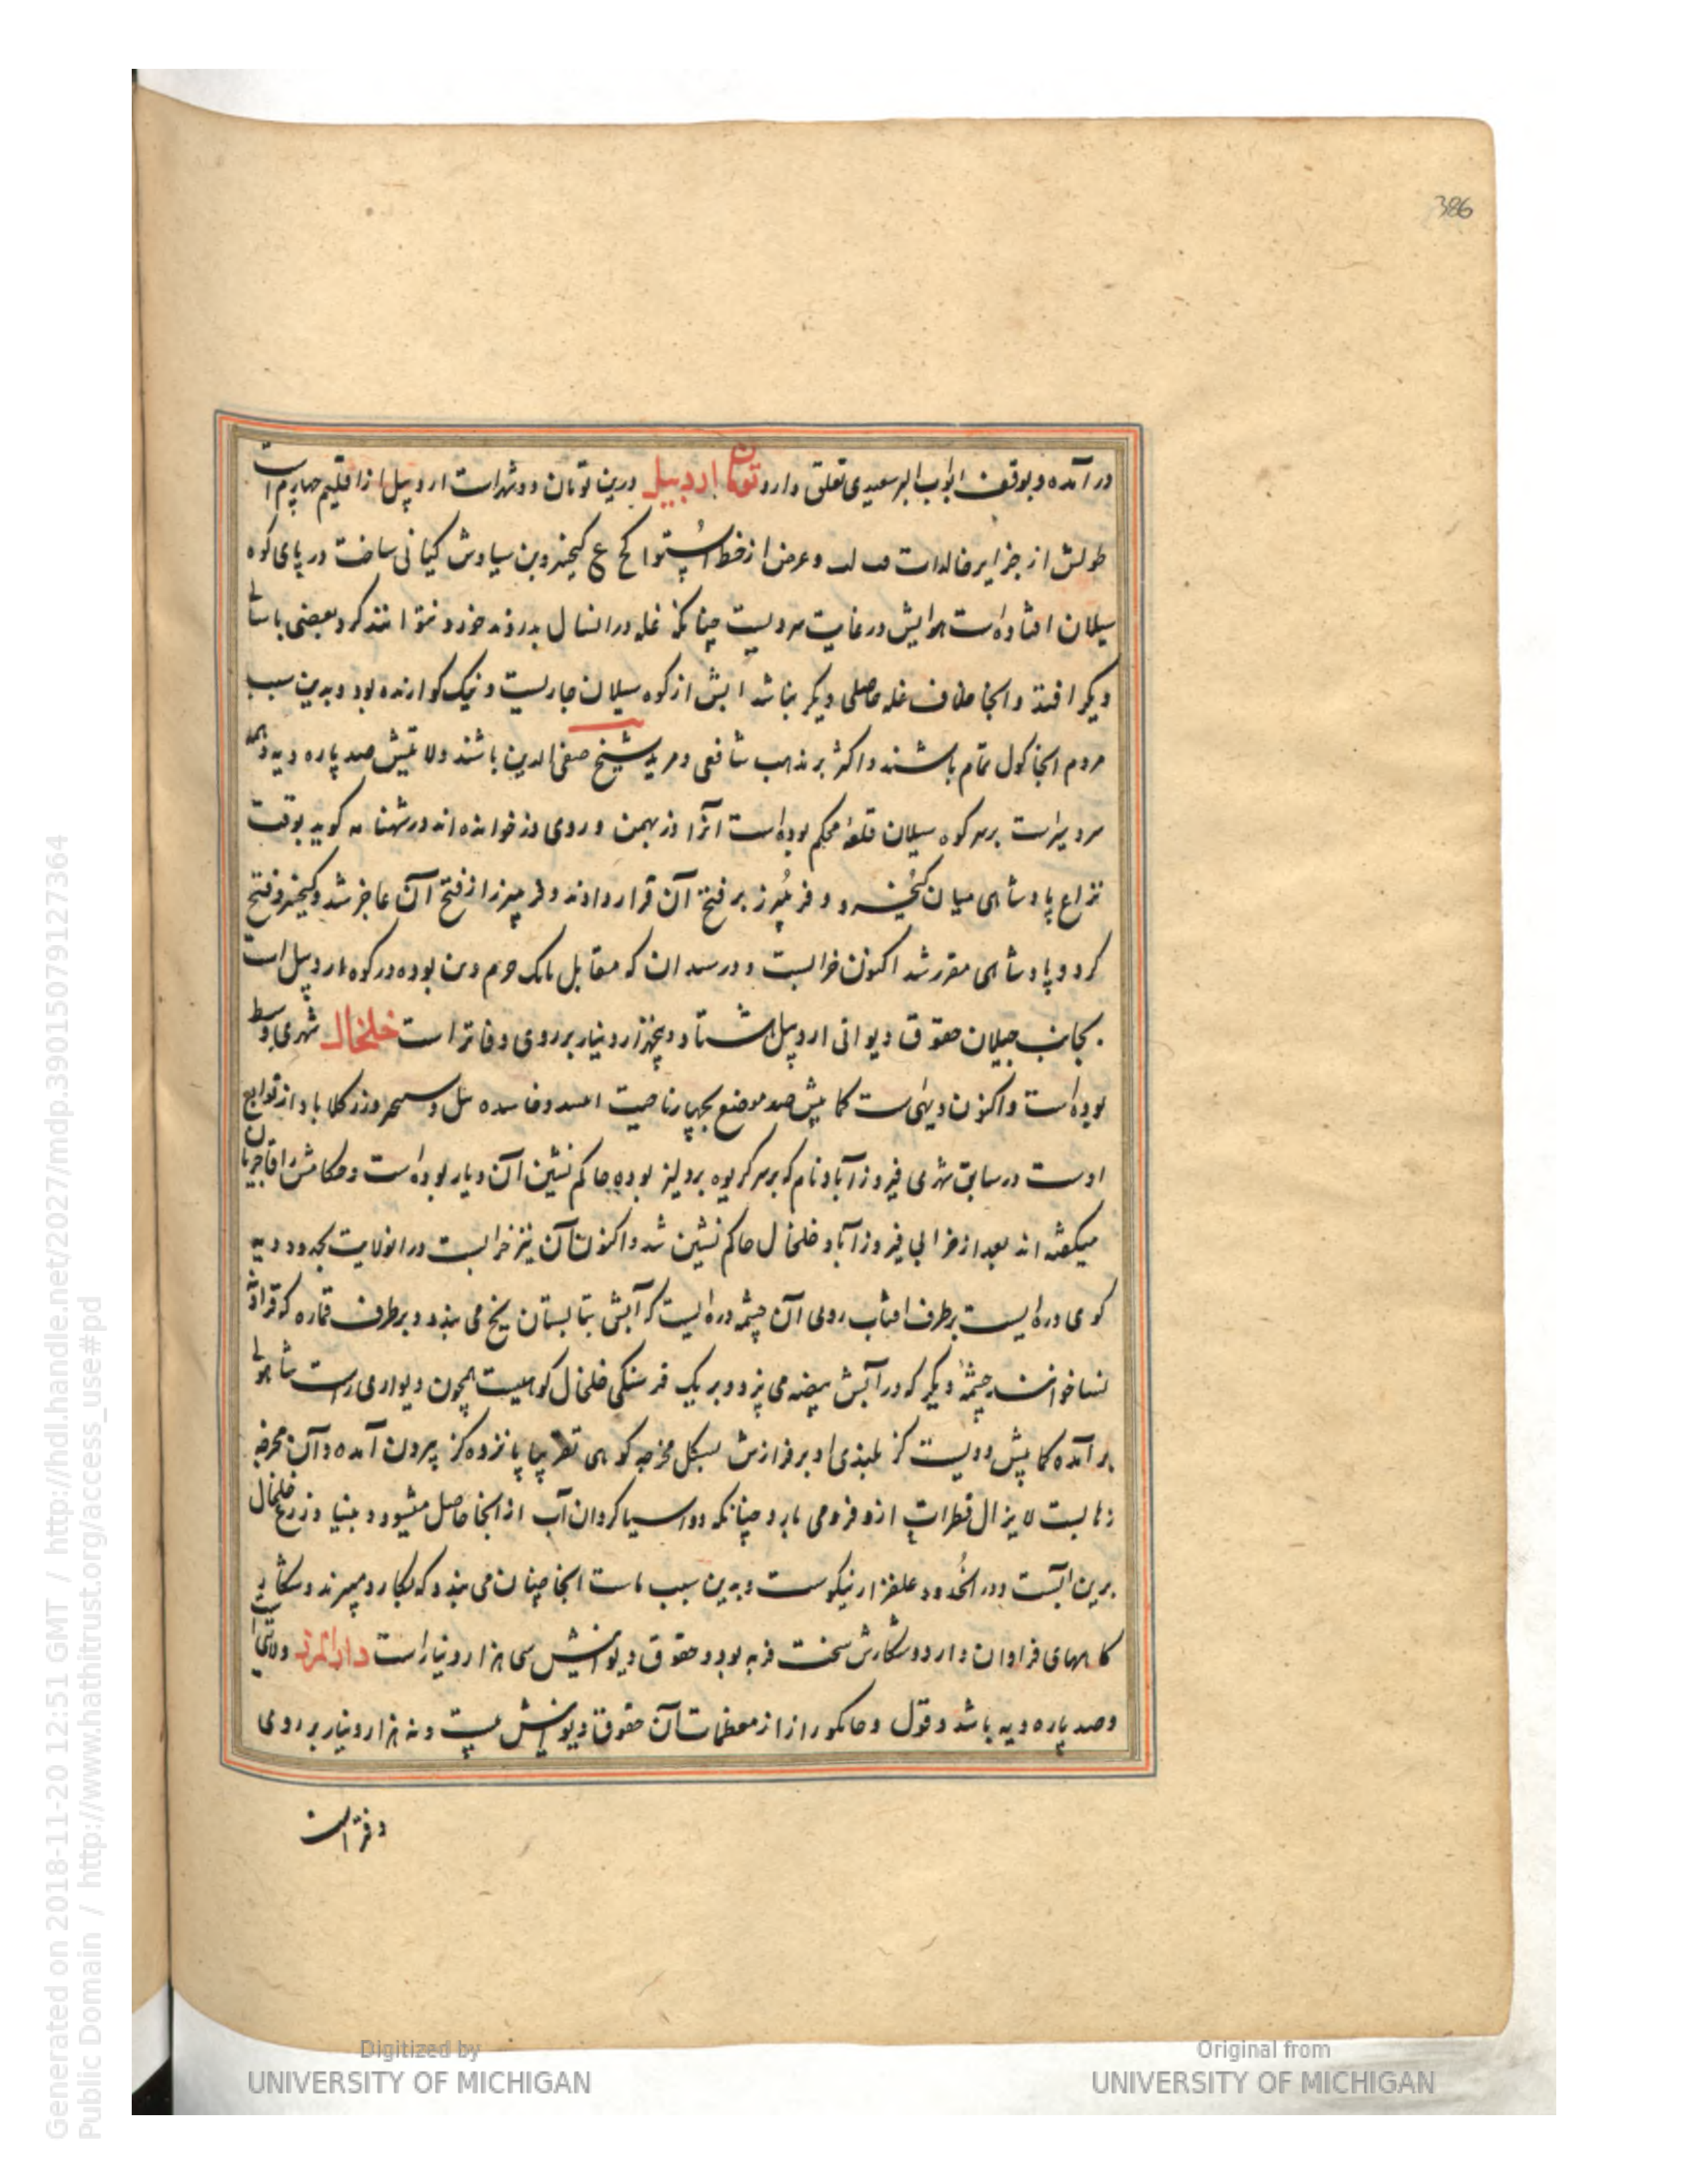 386
در آمده و بوقف ابواب البر سعیدی تعلق دارد تومان اردبیل درین تومان دو شهر است اردبیل از اقلیم چهارم است
طولش از جزایر خالدات فب لب و عرض از خط استوا لح ع کیخسرو بن سیاوش کیانی ساخت در پای کوه
سیلان افتاده است هوایش در غایت سردیست چنانکه غله در انسال بدروند خورد نتوانند کرد بعضی با سالی
دیگر افتد و انجا خلاف غله حاصلی دیگر نباشد ابش از کوه سیلان جاریست و نیک کوارنده بود و بدین سبب
مردم انجا کول تمام باشند و اکثر بر مذهب شافعی و مرید شیخ صفی الدین باشند ولایتیش صد پاره دیه و همه
سردسیر است بر سر کوه سیلان قلعهٔ محکم بوده است انرا دز بهمن و روی دز خوانده اند در شهنامه کوید بوقت
نزاع پادشاهی میان کیخسرو و فریبرز بر فتح آن قرار دادند و فریبرز از فتح آن عاجز شد و کیخسرو فتح
کرد و پادشاهی مقرر شد اکنون خرابست و در سدان که مقابل بابک خرم دین بوده در کوه اردبیل است
بجانب جیلان حقوق دیوانی اردبیل هشتاد و پنجهزار دینار بر روی دفاتر است خلخال شهری وسط
بوده است و اکنون دیهی ست کمابیش صد موضع بچهار ناحیت و از توابع
اوست در سابق شهری فیروزآباد نام که بر سر کریوه بردلیز بوده حاکم نشین آن دیار بوده است و حکامش را اقاجریان
میکفته اند بعد از خرابی فیروزآباد خلخال حاکم نشین شد و اکنون آن نیز خرابست در انولایت بحدود دیه
کوی دره ایست بر طرف افتاب روی آن چشمه دره ایست که آبش بتابستان یخ می بندد و بر طرف قماره که قراوش
نسا خوانند چشمهٔ دیکر که در آبش بیضه می پزد و بر یک فرسنکی خلخال کوهیست همچون دیواری راست شاهولی
بر آمده کمابیش دویست کز بلندی او بر فرازش بشکل مخرجه کوهی تقریبا پانزده کز بیرون آمده و آن مخرجه
زهابست لایزال قطرات ازو فرو می بارد چنانکه دو اسیا کردان آب از انجا حاصل میشود و بنیاد زرع خلخال
برین ابست و در الحدود علفزار نیکوست و بدین سبب ماست انجا چنان می بندد که بکارد میبرند و شکار
کاههای فراوان دارد و شکارش سخت فربه بود و حقوق دیوانیش سی هزار دینار است دارالمرز ولایتی است
و صد پاره دیه باشد و قول و جامکو رازان از معظمات آن حقوق دیوانیش بیست و نه هزار دینار بر روی
دفتر است